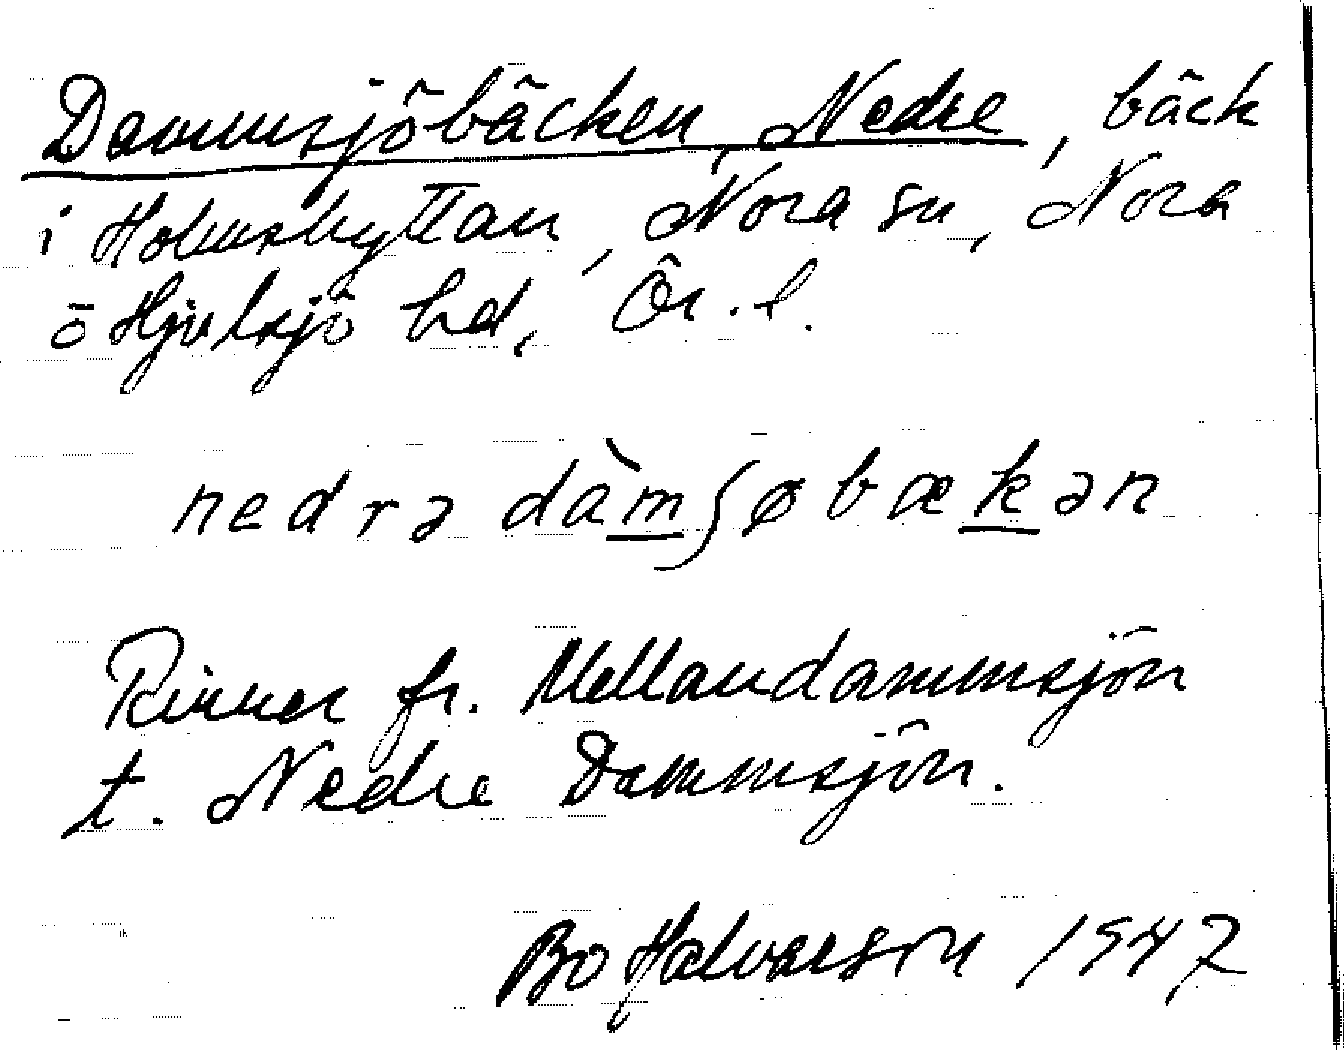 Dammsjöbäcken, Nedre, bäck
i Holmshyttan, Nora sn, Nora
o Hjulsjö hd, Ör. l.
nedrə dàmʃøbækən
Rinner fr. Mellandammsjön
t. Nedre Dammsjön.
Bo Halvarson 1947